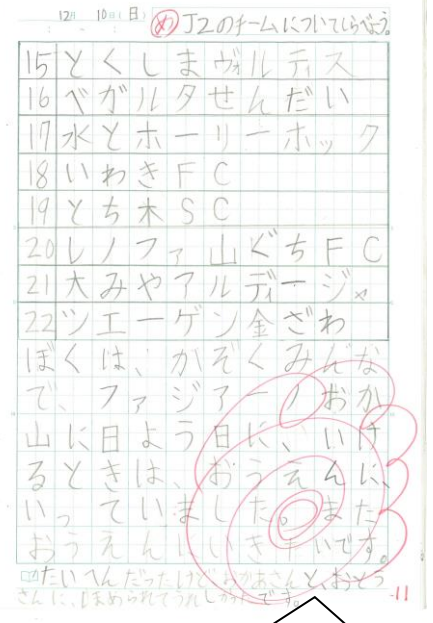 12月 10日(日) め J2のチームについてしらべよう。
15 とくしまヴォルティス
16 べガルタせんだい
17 水とホーリーホック
18 いわきFC
19 とち木SC
20 レノファ山ぐちFC
21 大みやアルディージャ
22 ツエーゲン金ざわ
ぼくは、かぞくみんな
で、ファジアーノおか
山に日よう日に、いけ
るときは、おうえんに、
いっていました。また
おうえんにいきたいです。
たいへんだったけどおかあさんと、おとう
さんに、ほめられてうれしかったです。
-11